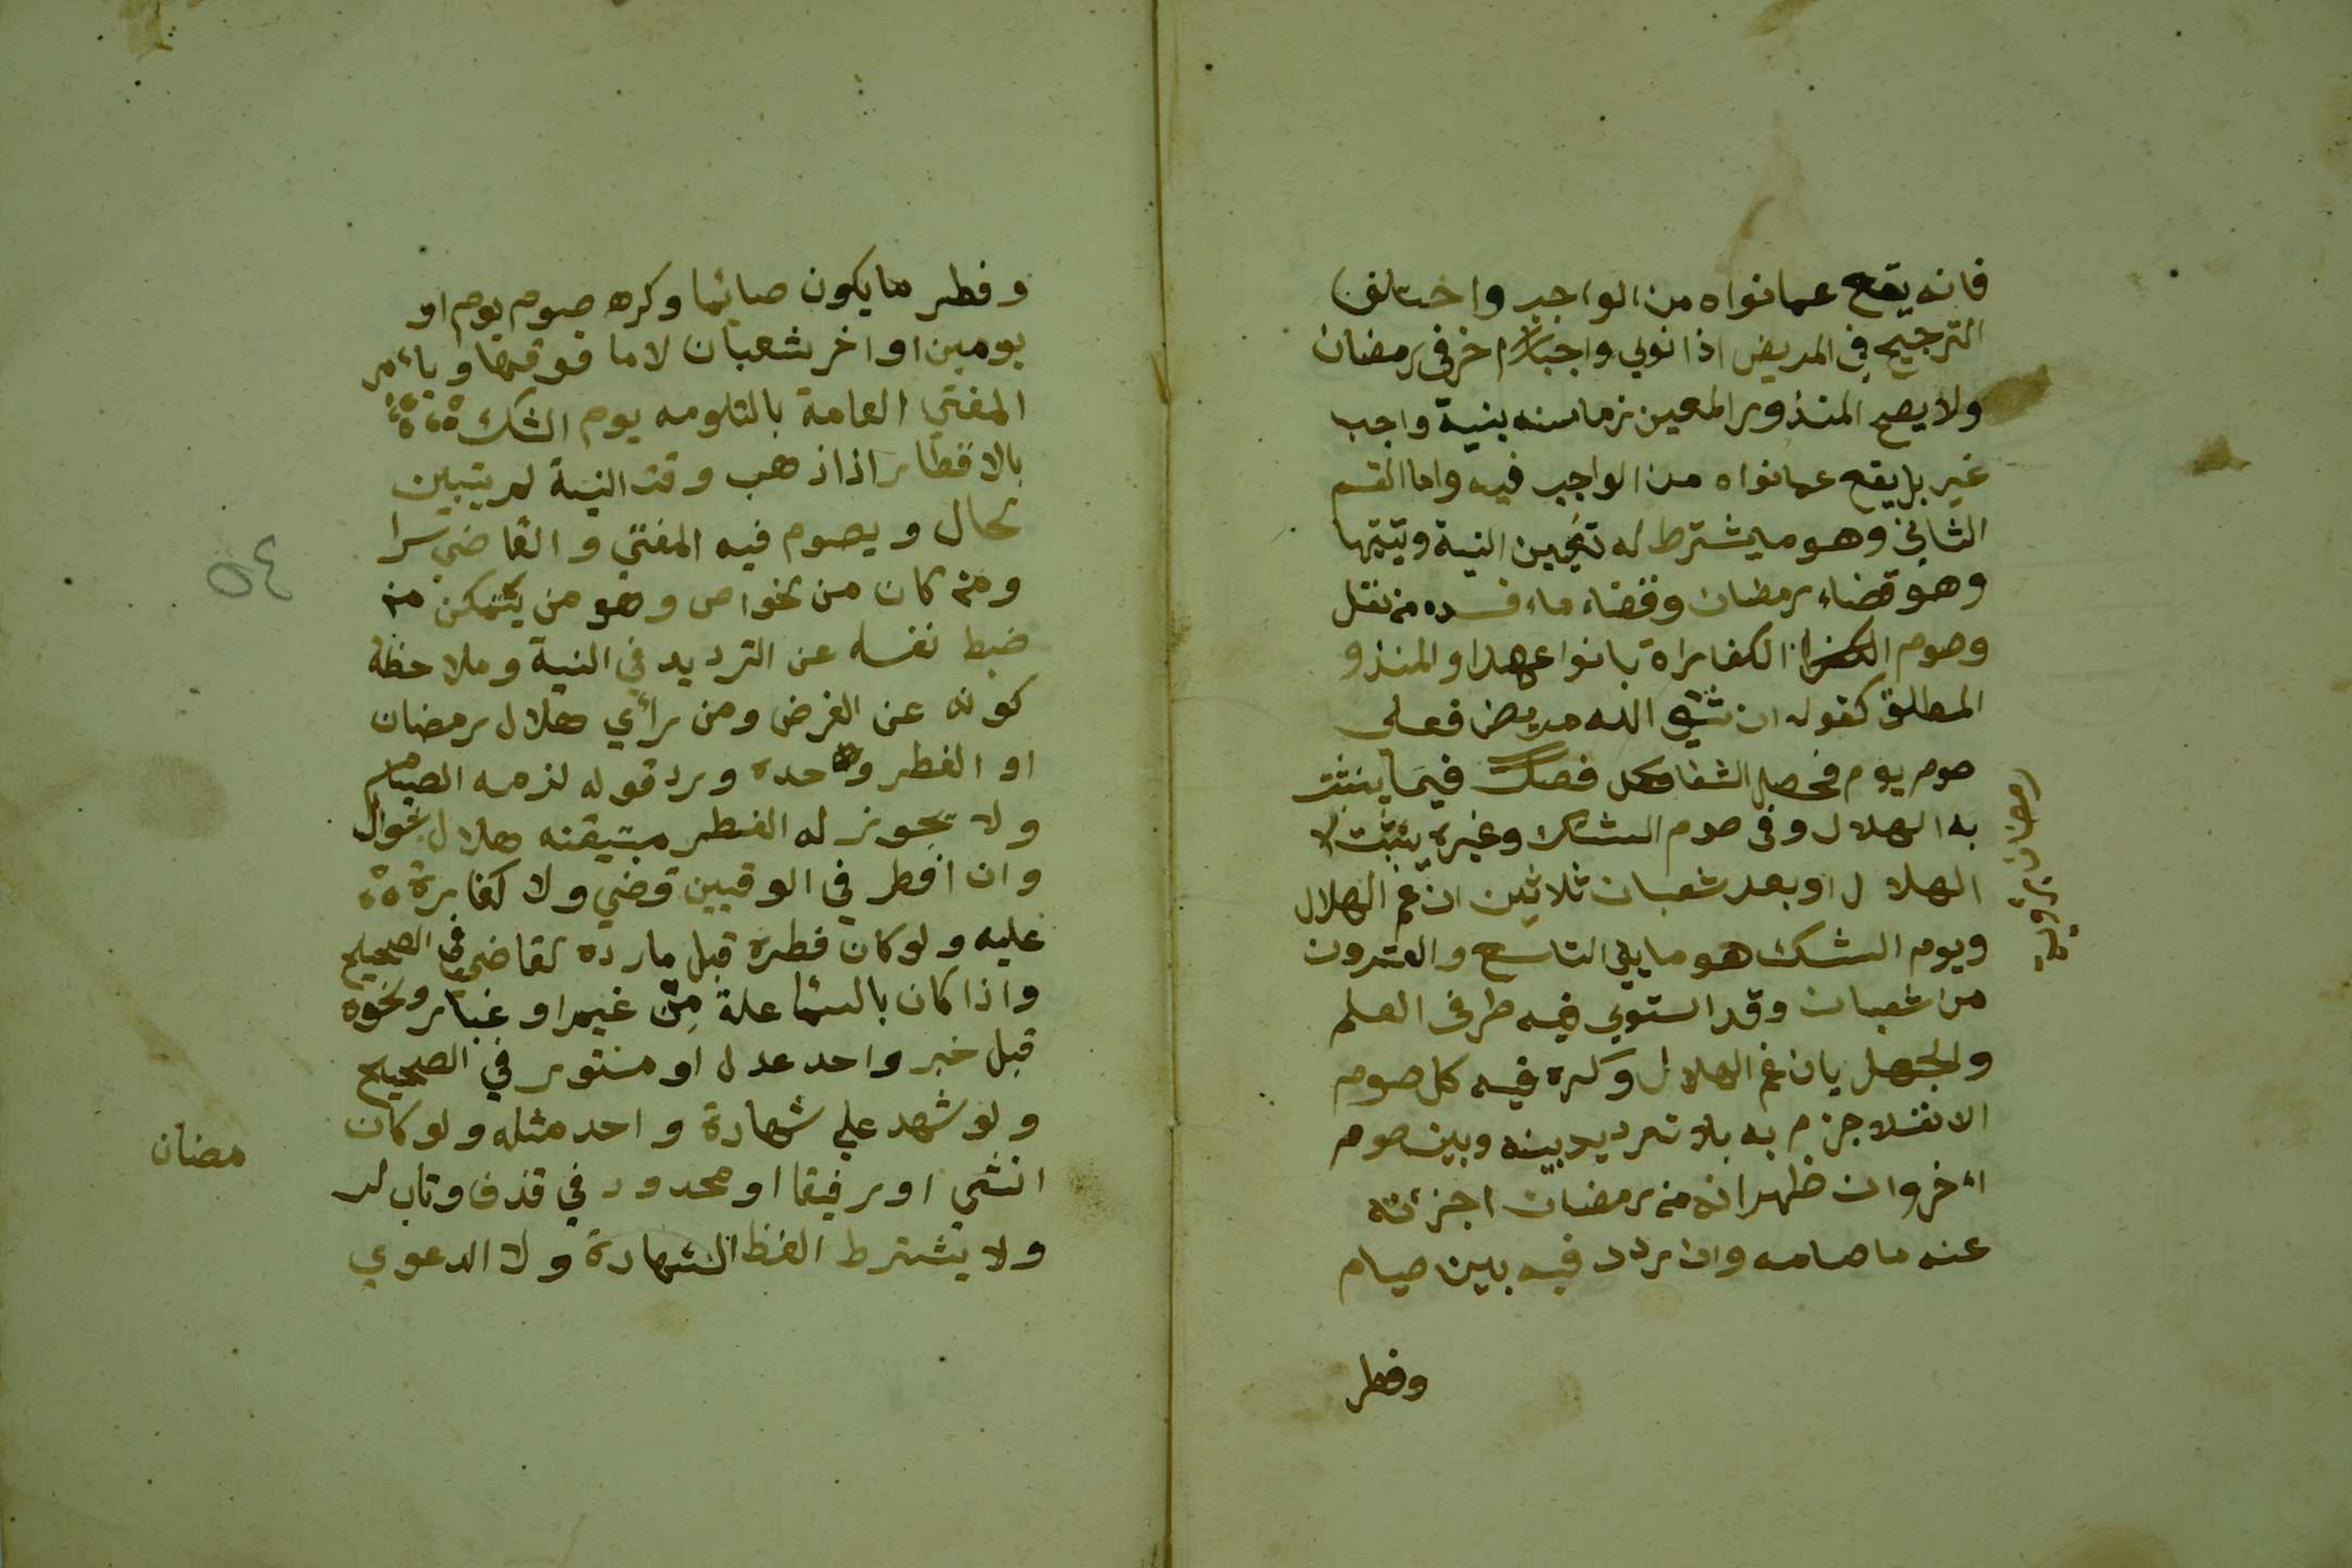 فانه يقع عما نواه من الواجب واختلف
الترجيح في المريض اذا نوي واجبا آخر في رمضان
ولا يصح المنذور المعين زمانه بنية واجب
غير بل يقع عما نواه من الواجب فيه واما القسم
الثاني وهو ما يشترط له تعيين النية وتبيتها
وهو قضاء رمضان وقضاء ما افسده من نفل
وصوم الكفاراة بانواعها والمنذور
المطلق كقوله ان شفي الله مريض فعلي
صوم يوم فحصل الشفا فصل فيما يثبت
به الهلال وفي صوم الشك وغيره يثبت
الهلال او بعد شعبان ثلاثين ان غم الهلال
ويوم الشك هو ما يلي التاسع والعشرون
من شعبان وقد استوي فيه طرفى العلم
والجهل بان غم الهلال وكره فيه كل صوم
الا نفلا جزم به بلا ترديد بينه وبين صوم
آخر وان ظهر انه من رمضان اجزئه
عنه ما صامه وان ردد فيه بين صيام
وفطر
رمضان برؤية
وفطر ما يكون صائما وكره صوم يوم او
يومين او اخر شعبان لا ما فوقهما ويأمر
المفتي العامة بالتلومه يوم الشك
بالافطار اذا ذهب وقت النية لم يتبين
لحال ويصوم فيه المفتي والقاضي سرا
ومن كان من لخواص وهو من يتمكن من
ضبط نفسه عن الترديد في النية وملاحظة
كونه عن الفرض ومن رأي هلال رمضان
او الفطر وحده ورد قوله لزمه الصيام
ولا يجوز له الفطر متيقنه هلال شوال
وان افطر في الوقتين قضي ولا كفارة
عليه ولو كان فطره قبل ما رده لقاضي في الصحيح
واذا كان بالسما علة من غيم او غبار ونحوه
قبل خبر واحد عدل او مستور في الصحيح
ولو شهد علي شهادة واحد مثله ولو كان
انثي او رفيقا او محدود في قذف وتاب لر
ولا يشترط الفظ الشهادة ولا الدعوي
٥٤
مضان